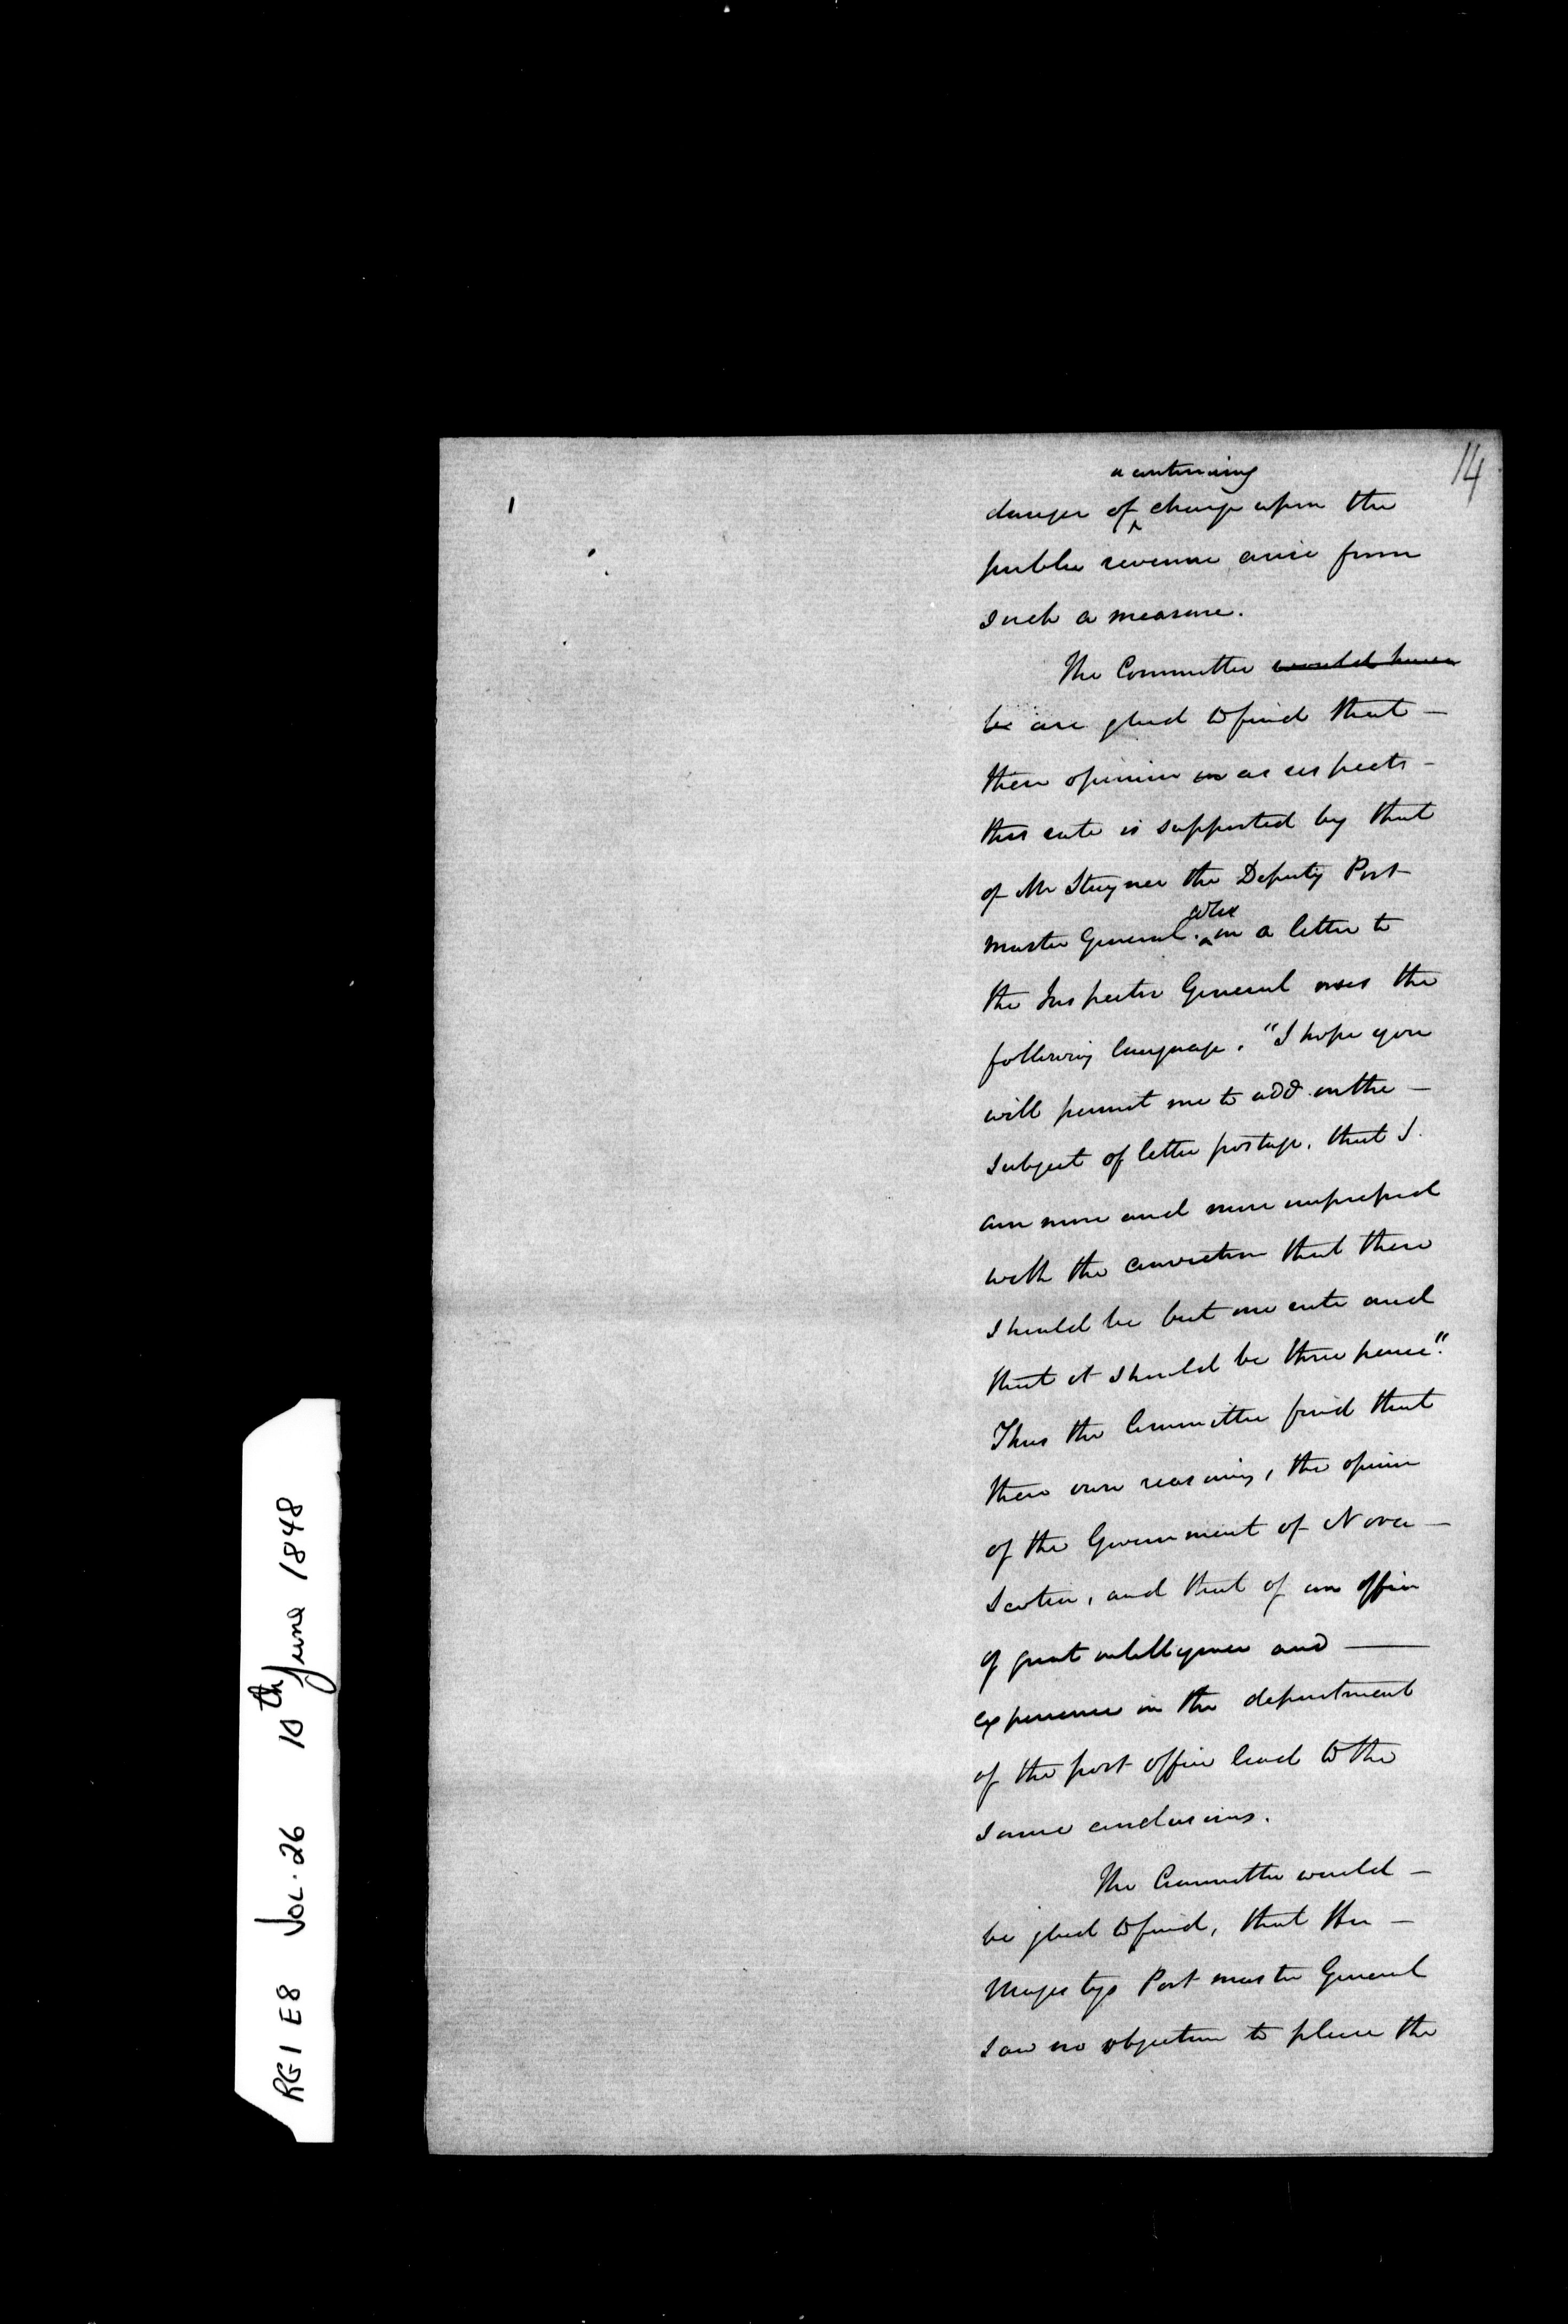 14
a continuing
danger of ^ charge upon the
public revenue arise from
such a measure.
The Committee would have
be are glad to find that —
their opinion as respects —
this rate is supported by that
of Mr Stayner the Deputy Post
master General. who ^ in a letter to
the Inspector General uses the
following language. "I hope you
will permit me to add on the —
subject of letter postage, that I
am more and more impressed
with the conviction that there
should be but one rate and
that it should be three pence."
Thus the Committee find that
their own reasoning, the opinion
of the Government of Nova —
Scotia, and that of an officer
of great intelligence and —
experience in the department
of the post office lead to the
same conclusions.
The Committee would —
be glad to find, that Her —
Majestys Post master General
saw no objection to place the
RG1 E8 Vol. 26 10th June 1848